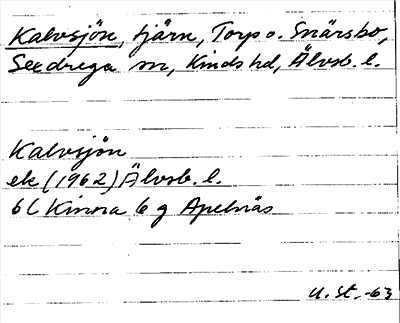 Kalvsjön, tjärn, Torp o. Snärsbo,
Seedrega sn, Kinds hd, Älvsb. l.
Kalvsjön
ek (1962) Älvsb. l.
6C Kinna 6 g Apelnäs
U. St. -63